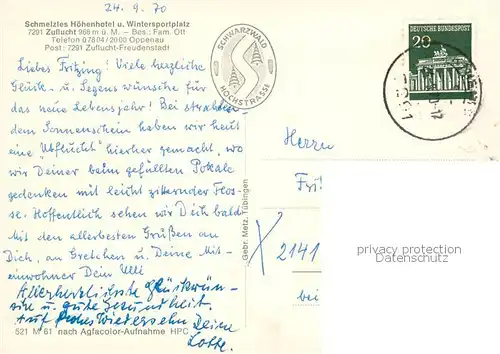 24. 9. 70
Schmelzles Höhenhotel u. Wintersportplatz
7291 Zuflucht 968 m ü. M - Bes.: Fam. Ott
Telefon 07804/2000 Oppenau
Post: 7291 Zuflucht-Freudenstadt
SCHWARZWALD
HOCHSTRASSE
DEUTSCHE BUNDESPOST
20
Liebes Fritzing! Viele herzliche
Glück- u. Segenswünsche für
das neue Lebensjahr! Bei strahlen-
dem Sonnenschein haben wir heut
eine "Uflucht" hierher gemacht, wo
wir Deiner beim gefüllten Pokale
gedenken mit leicht zitternder Flos-
se. Hoffentlich sehen wir Dich bald
Mit den allerbesten Grüßen an
Dich, an Gretchen u. Deine Mit-
einwohner Dein Ulli
Allerherzlichste Glückwün-
sche u. gute Gesundheit.
Auf frohes Wiedersehn Deine
Lotte.
Herrn
Fri
2141
bei
Gebr. Metz, Tübingen
privacy protection
Datenschutz
521 M 61 nach Agfacolor-Aufnahme HPC